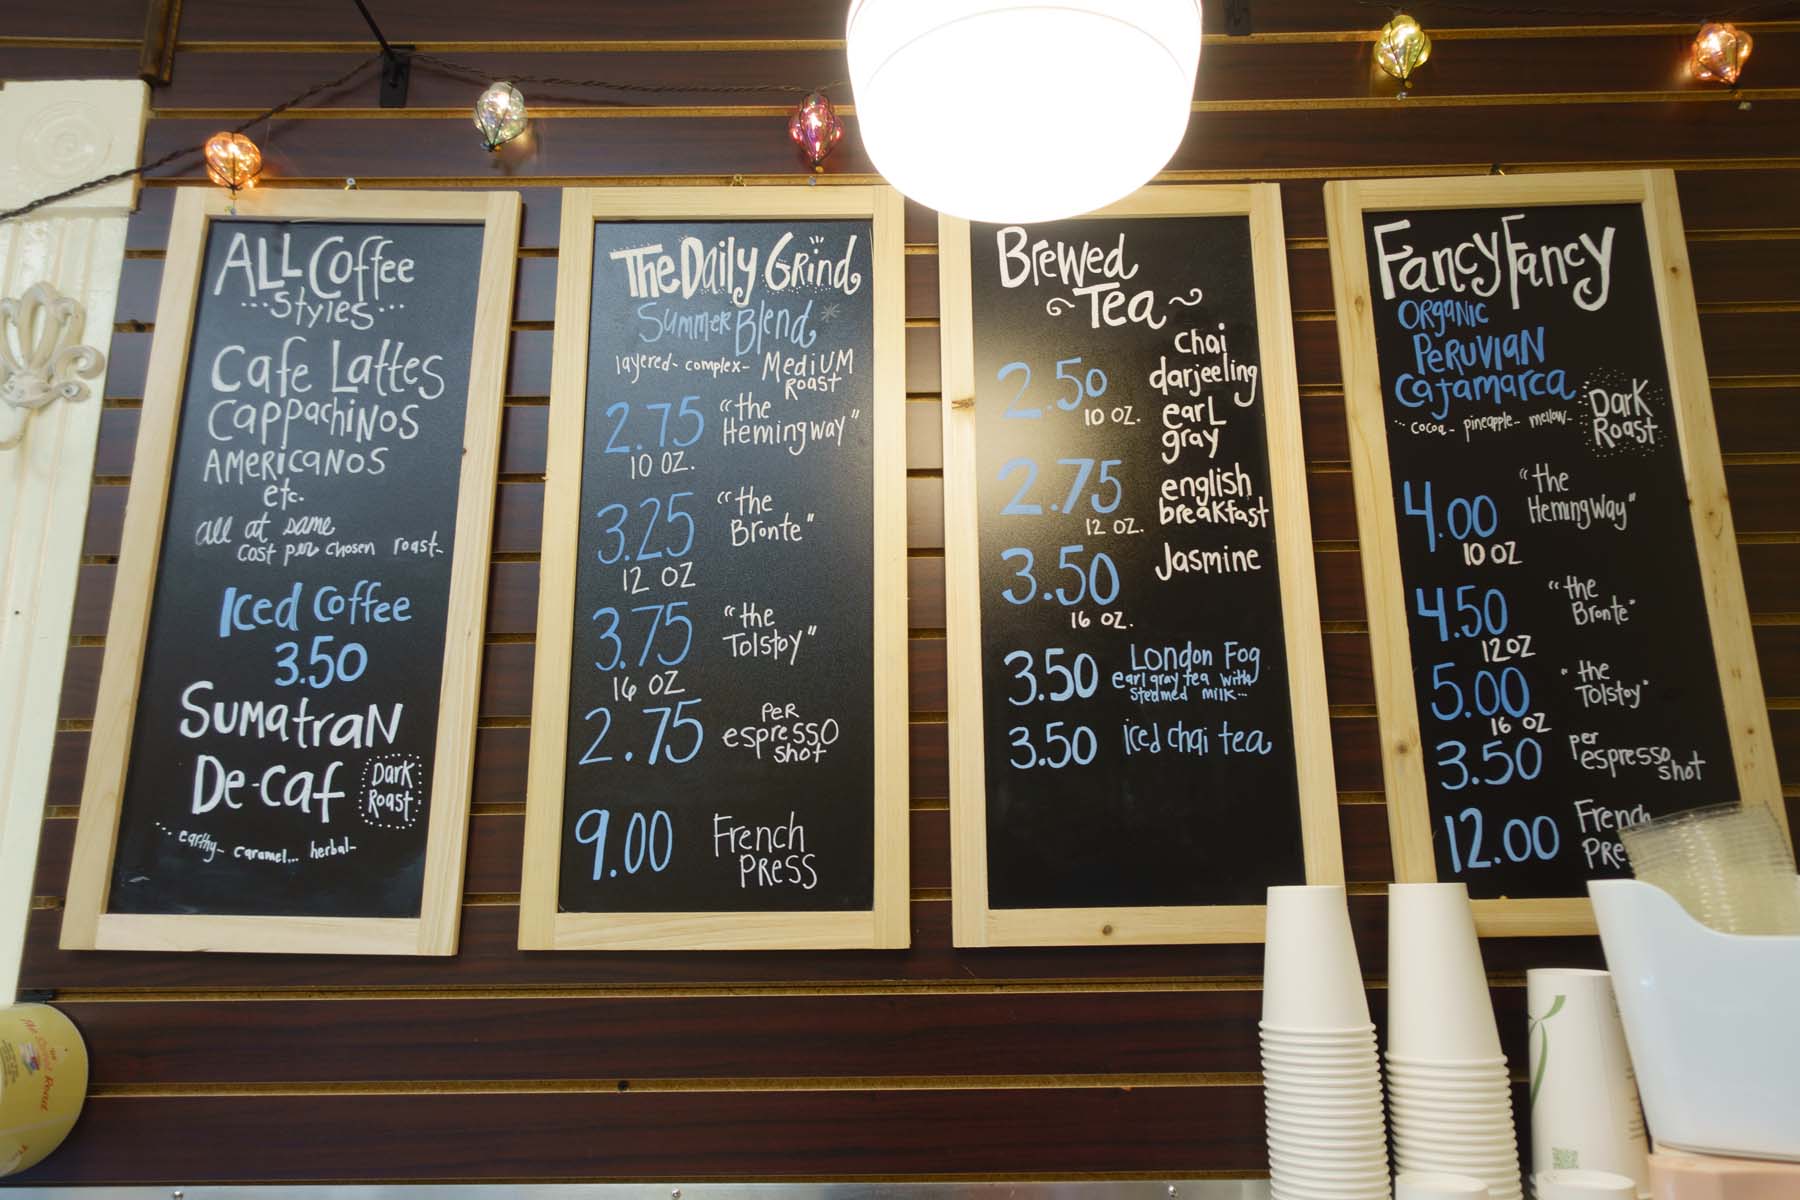 ALL Coffee
...Styles...
Cafe Lattes
Cappachinos
Americanos
etc.
all at same
cost per chosen roast-
Iced Coffee
3.50
Sumatran
De-caf
Dark
Roast
...earthy- caramel... herbal-
The Daily Grind
Summer Blend
layered- complex- Medium
Roast
2.75 "the
Hemingway"
10 oz.
3.25 "the
Bronte"
12 oz
3.75 "the
Tolstoy"
16 oz
2.75 per
espresso
shot
9.00 French
Press
Brewed
~Tea~
2.50
10 oz.
2.75
12 oz.
3.50
16 oz.
chai
darjeeling
earl
gray
english
breakfast
Jasmine
3.50 London Fog
earl gray tea with
steamed milk...
3.50 iced chai tea
Fancy Fancy
Organic
Peruvian
Cajamarca
...cocoa- pineapple- mellow-
Dark
Roast
4.00 "the
Hemingway"
10 oz
4.50 "the
Bronte"
12 oz
5.00 "the
Tolstoy"
16 oz
3.50 per
espresso
shot
12.00 French
Pre